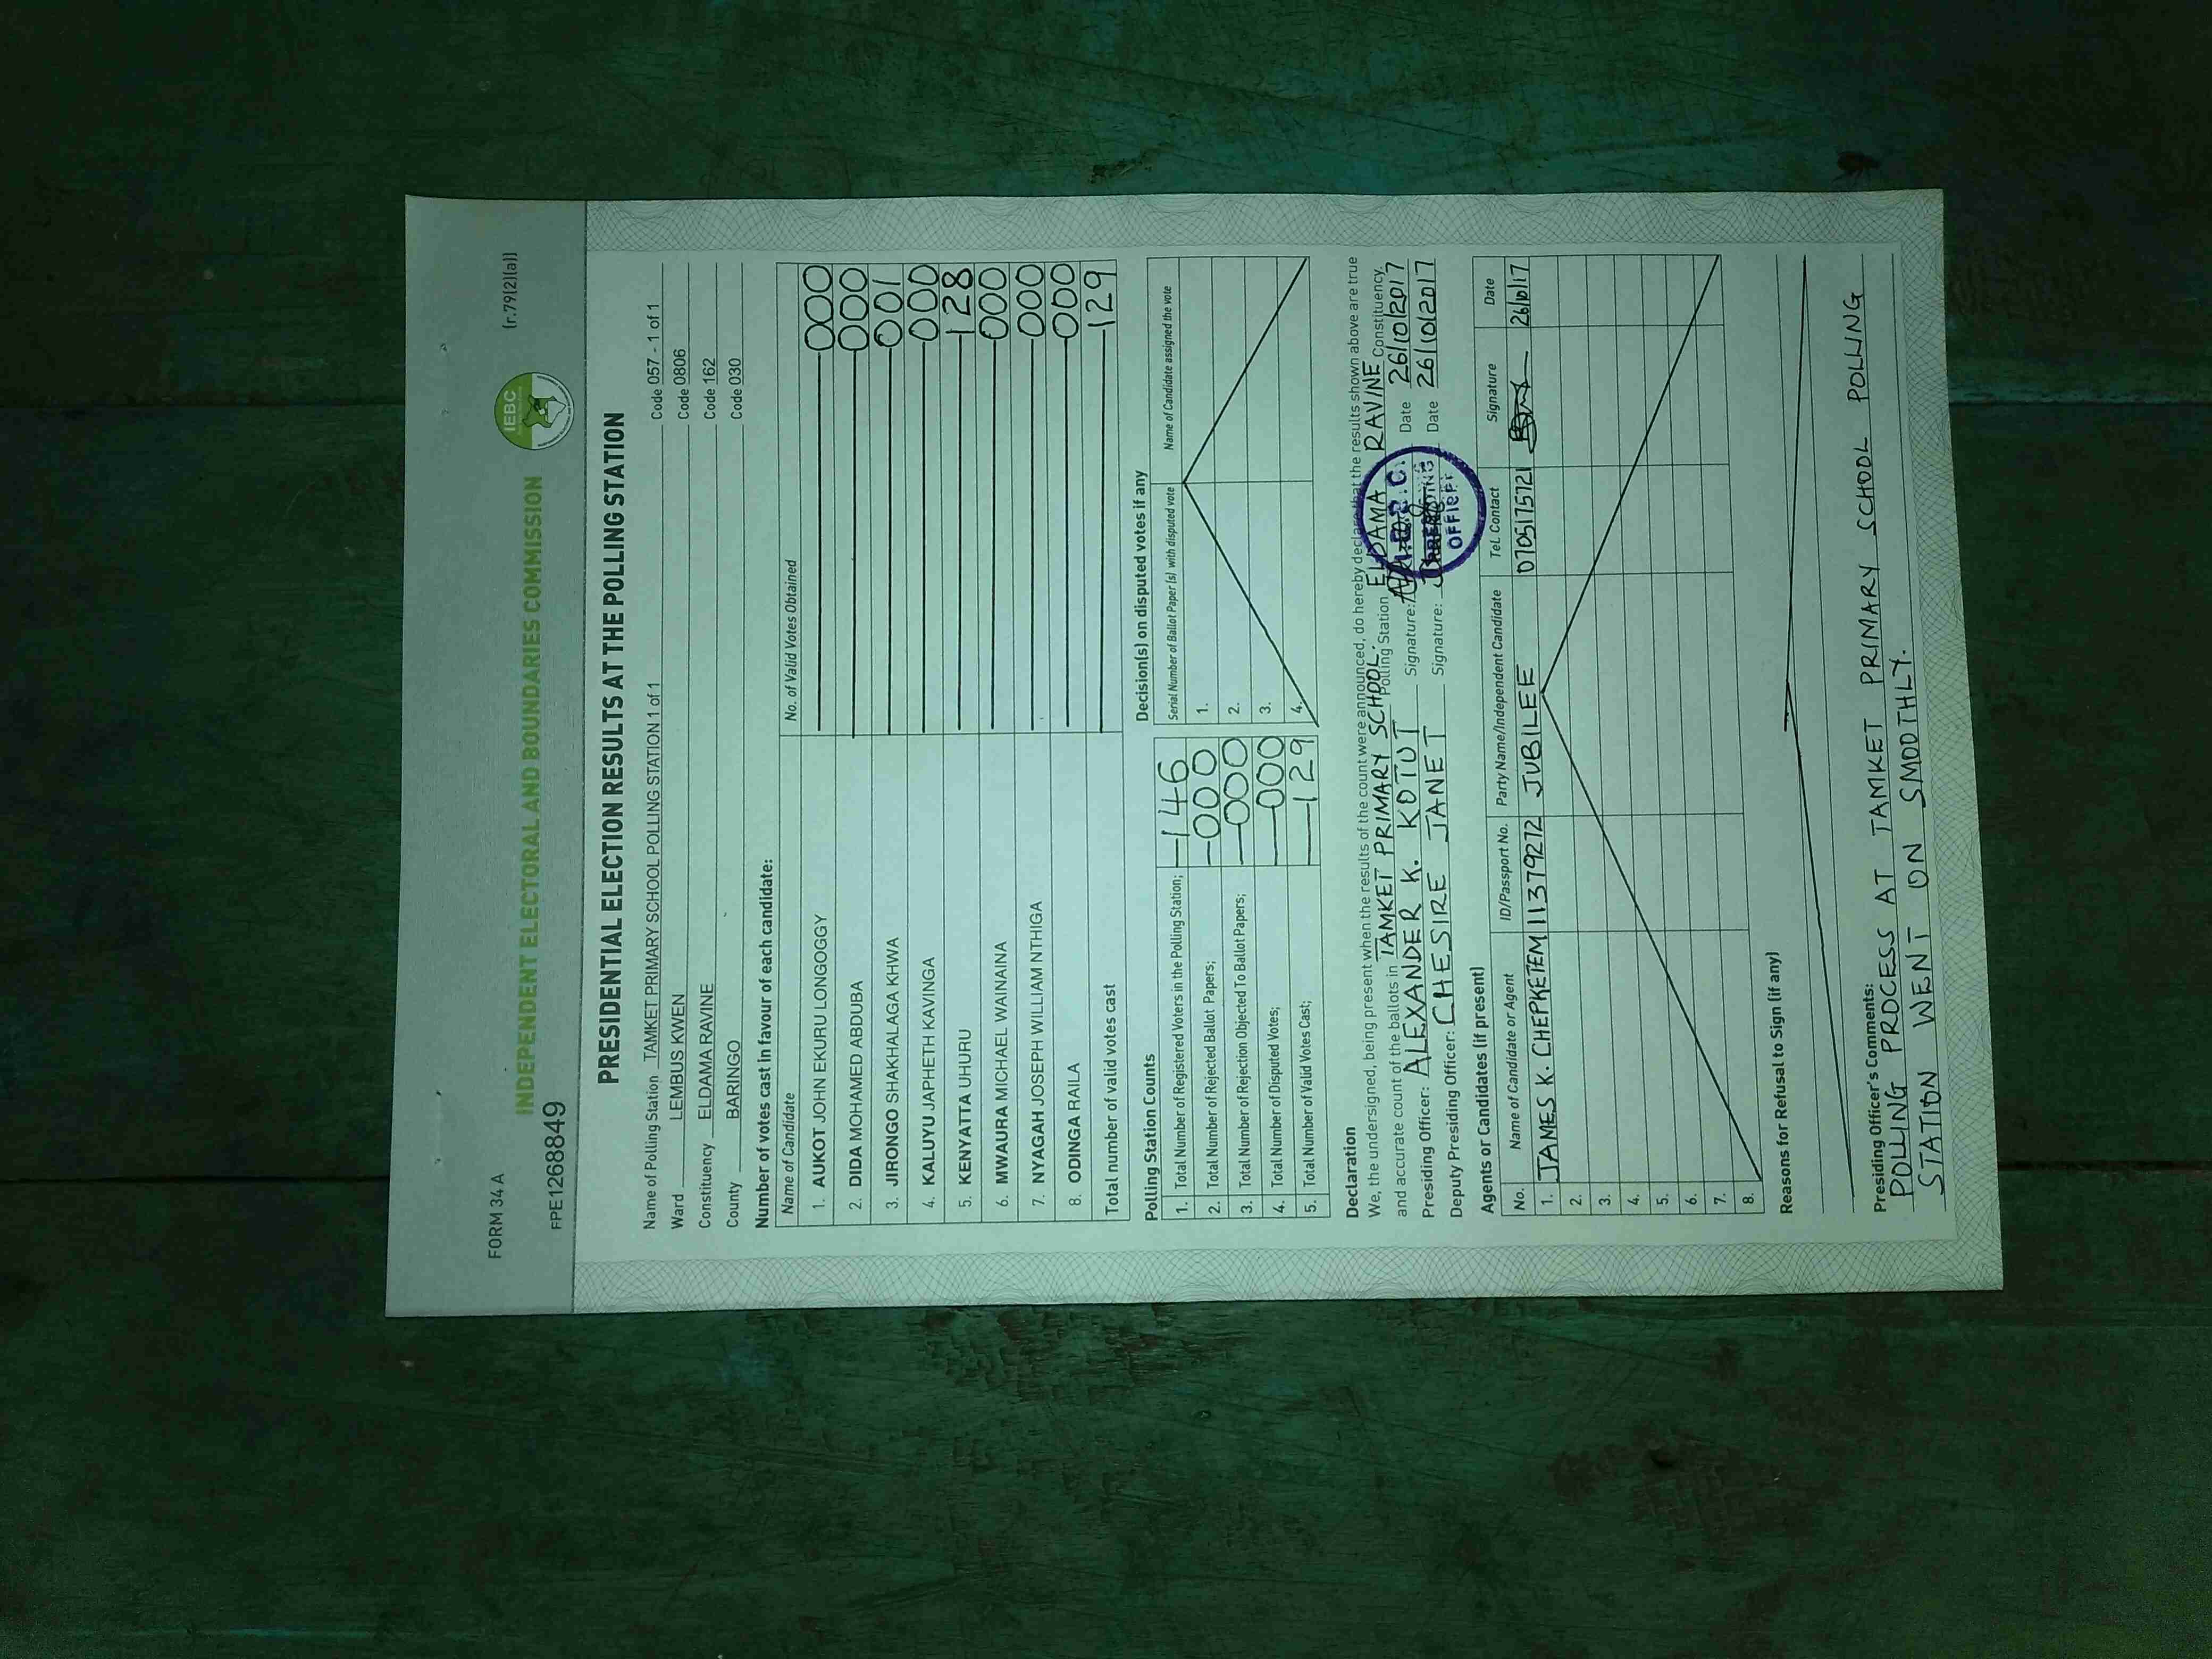 FORM 34 A
(r.79(2)(a))
IEBC
INDEPENDENT ELECTORAL AND BOUNDARIES COMMISSION
FPE1268849
PRESIDENTIAL ELECTION RESULTS AT THE POLLING STATION
Name of Polling Station TAMKET PRIMARY SCHOOL POLLING STATION 1 of 1 Code 057 - 1 of 1
Ward LEMBUS KWEN Code 0806
Constituency ELDAMA RAVINE Code 162
County BARINGO Code 030
Number of votes cast in favour of each candidate:
Name of Candidate No. of Valid Votes Obtained
1. AUKOT JOHN EKURU LONGOGGY 000
2. DIDA MOHAMED ABDUBA 000
3. JIRONGO SHAKHALAGA KHWA 001
4. KALUYU JAPHETH KAVINGA 000
5. KENYATTA UHURU 128
6. MWAURA MICHAEL WAINAINA 000
7. NYAGAH JOSEPH WILLIAM NTHIGA 000
8. ODINGA RAILA 000
Total number of valid votes cast 129
Polling Station Counts
1. Total Number of Registered Voters in the Polling Station; 146
2. Total Number of Rejected Ballot Papers; 000
3. Total Number of Rejection Objected To Ballot Papers; 000
4. Total Number of Disputed Votes; 000
5. Total Number of Valid Votes Cast; 129
Decision(s) on disputed votes if any
Serial Number of Ballot Paper (s) with disputed vote Name of Candidate assigned the vote
1.
2.
3.
4.
Declaration
We, the undersigned, being present when the results of the count were announced, do hereby declare that the results shown above are true
and accurate count of the ballots in TAMKET PRIMARY SCHOOL. Polling Station ELDAMA RAVINE Constituency.
Presiding Officer: ALEXANDER K. KOTUT Signature: Date 26/10/2017
Deputy Presiding Officer: CHESIRE JANET Signature: Date 26/10/2017
OFFICER
Agents or Candidates (if present)
No. Name of Candidate or Agent ID/Passport No. Party Name/Independent Candidate Tel. Contact Signature Date
1. JAMES K. CHEPKETEM 11379272 JUBILEE 0705175721 26/10/17
2.
3.
4.
5.
6.
7.
8.
Reasons for Refusal to Sign (if any)
Presiding Officer's Comments:
POLLING PROCESS AT TAMKET PRIMARY SCHOOL POLLING
STATION WENT ON SMOOTHLY.